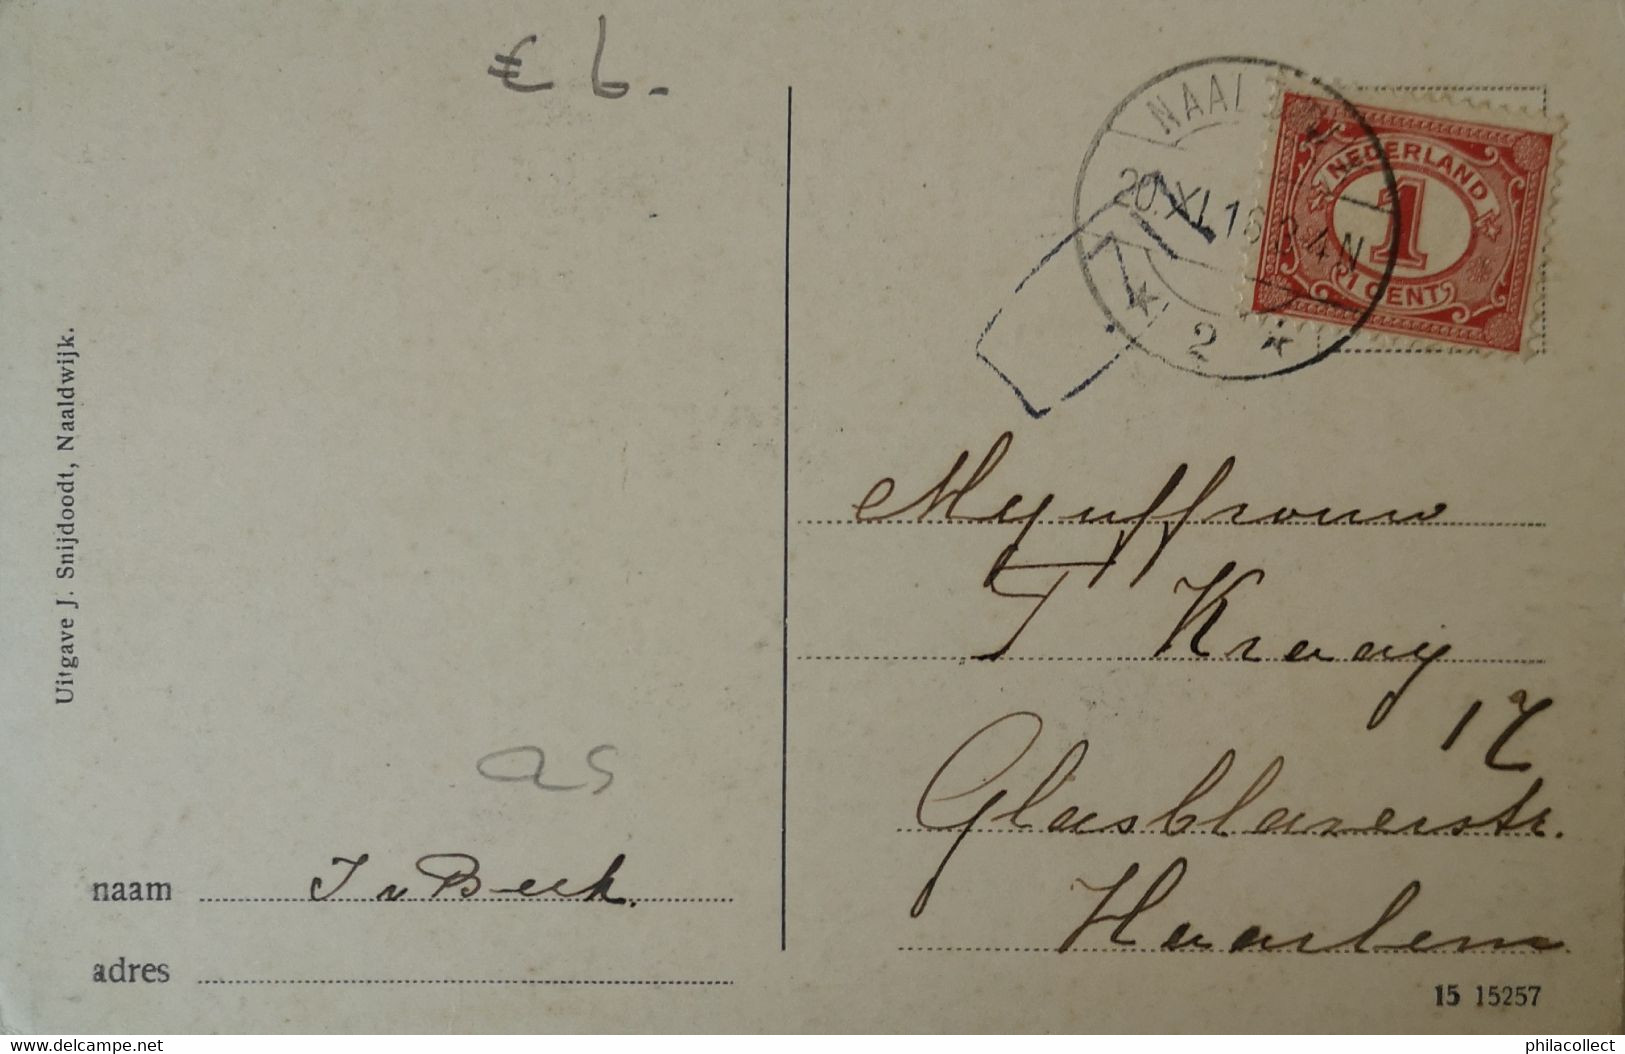 € 6.-
NAAL
20.XI.16
4N
2
NEDERLAND
1
1 CENT
Uitgave J. Snijdoodt, Naaldwijk.
Mejuffrouw
T Kraay
17
Glasblazerstr.
Haarlem
as
naam J v Beek.
adres
15 15257
www.delcampe.net
philacollect